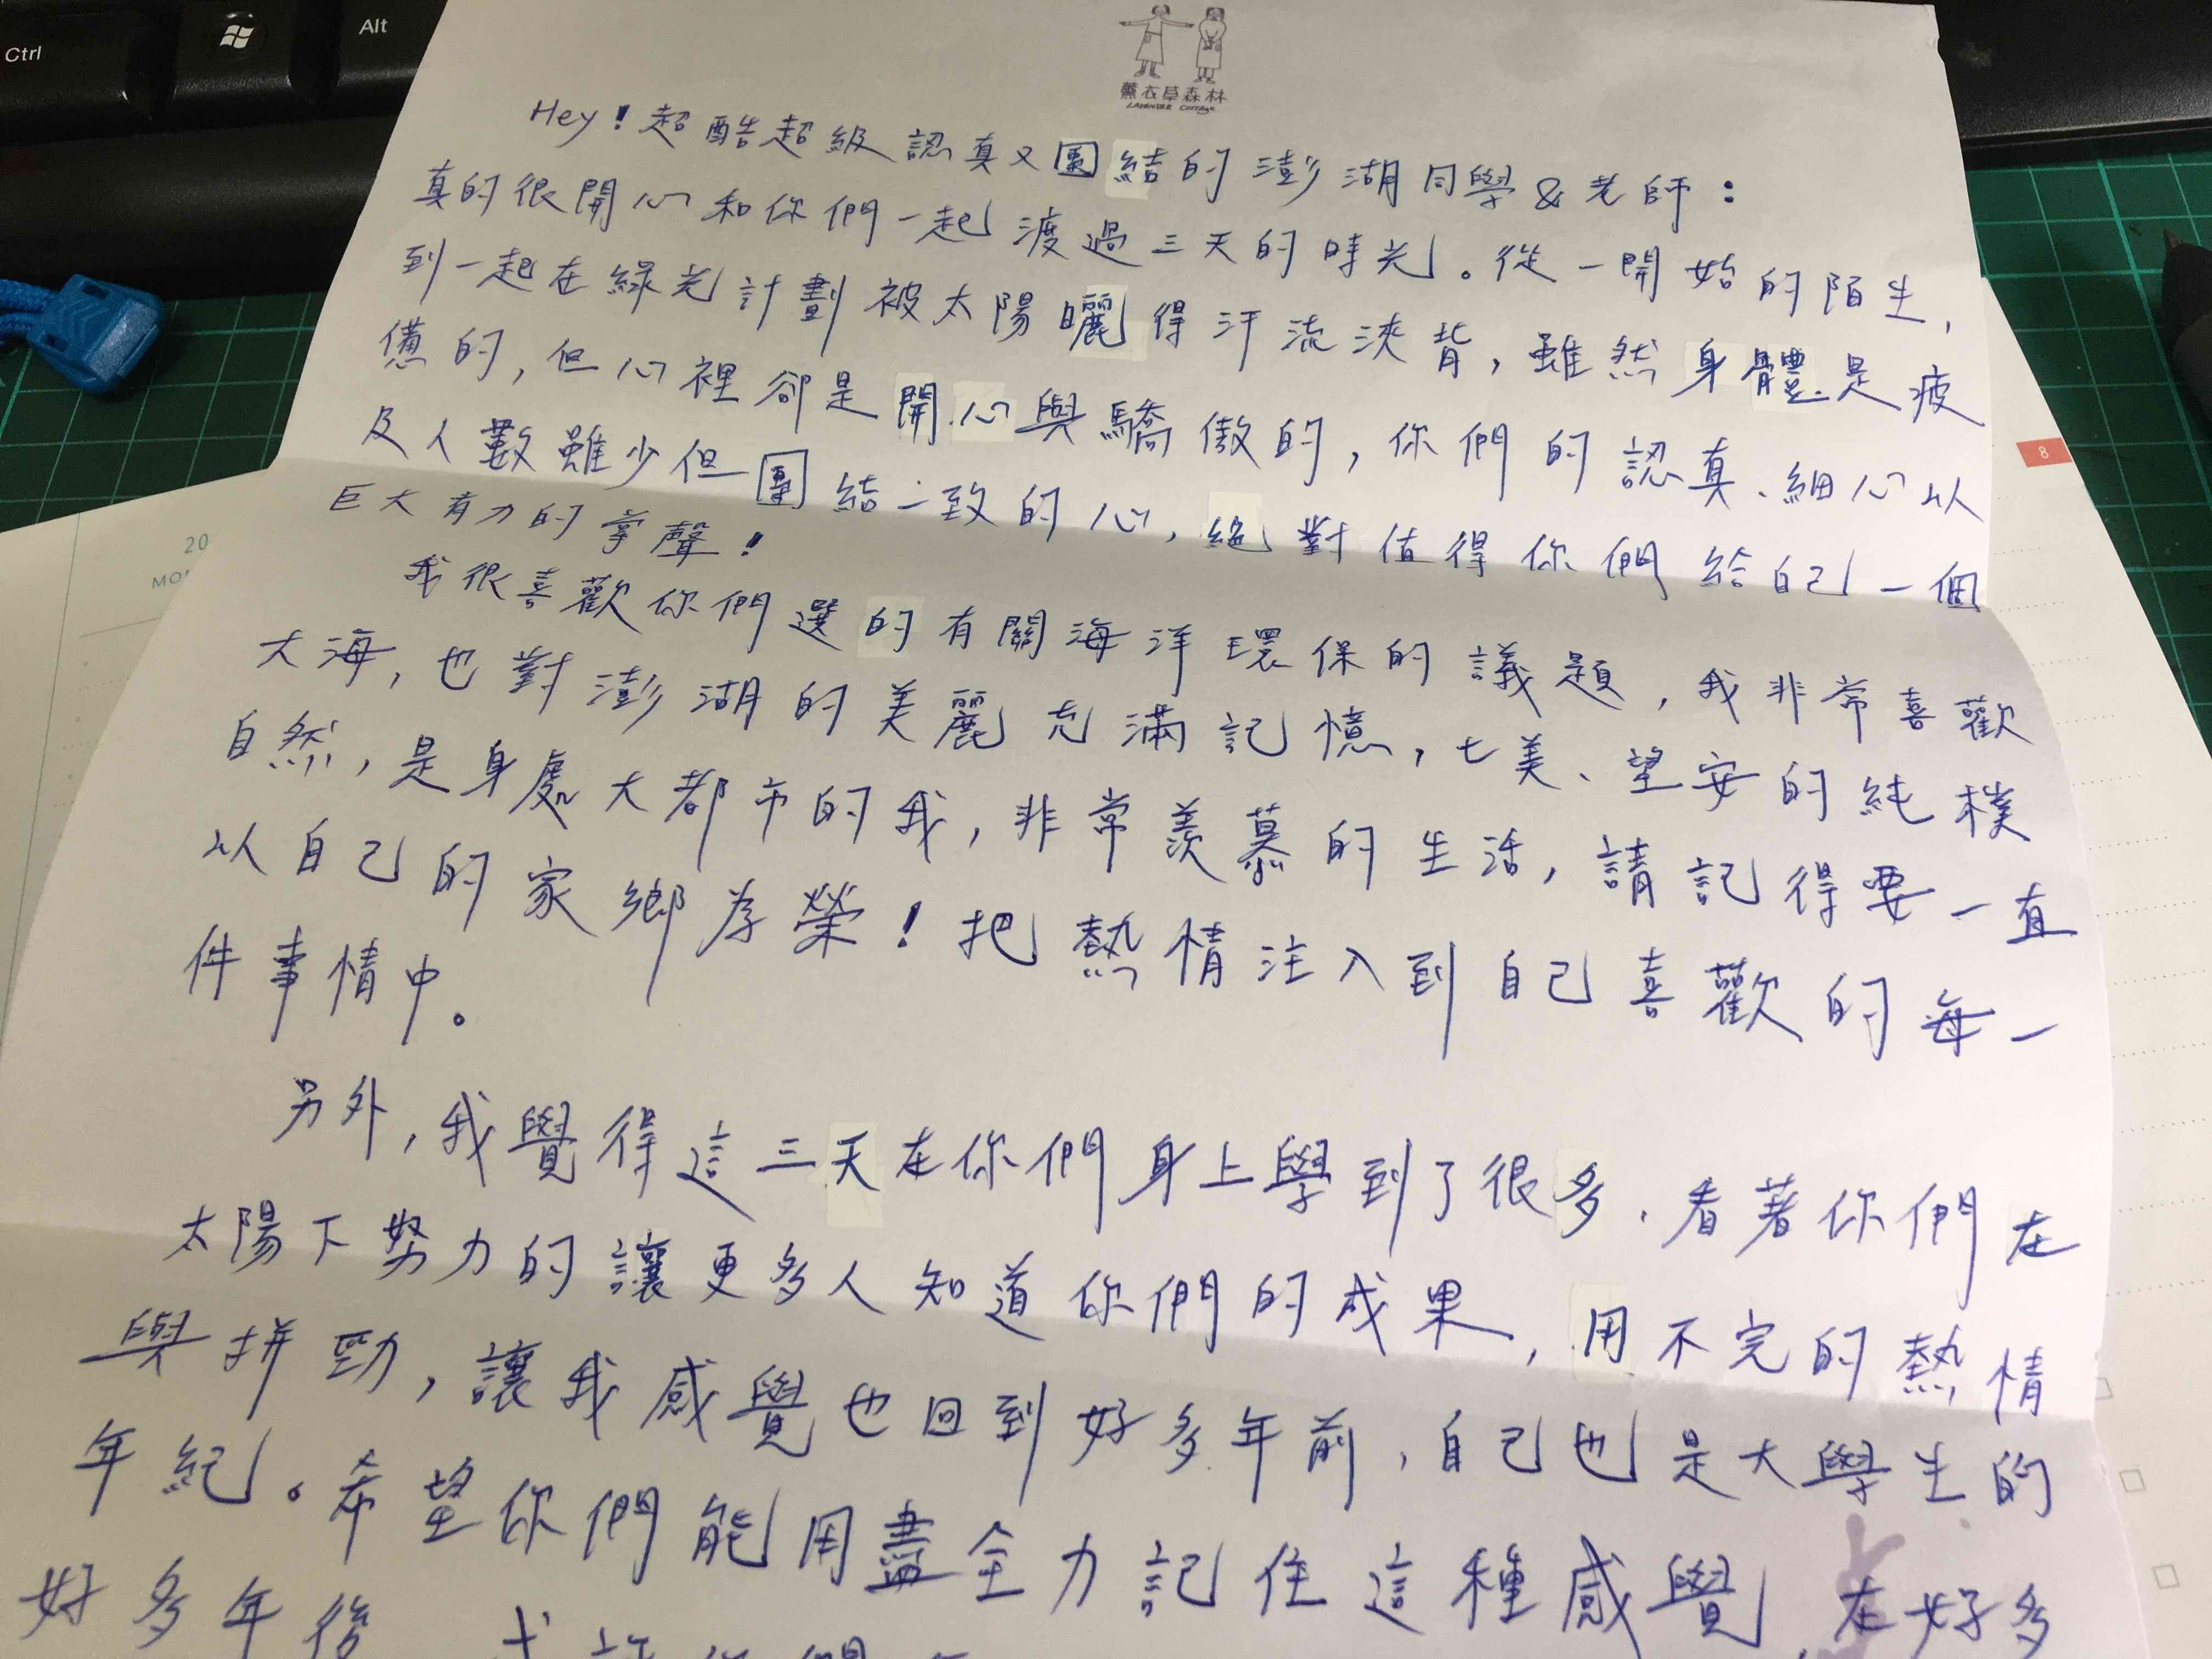 Ctrl
Alt
薰衣草森林
LAVENDER COTTAGE
Hey!超酷超級認真又團結的澎湖同學&老師:
真的很開心和你們一起渡過三天的時光。從一開始的陌生,
到一起在綠光計劃被太陽曬得汗流浹背,雖然身體是疲
憊的,但心裡卻是開心與驕傲的,你們的認真、細心以
及人數雖少但團結一致的心,絕對值得你們給自己一個
巨大有力的掌聲!
我很喜歡你們選的有關海洋環保的議題,我非常喜歡
大海,也對澎湖的美麗充滿記憶,七美、望安的純樸
自然,是身處大都市的我,非常羨慕的生活,請記得要一直
以自己的家鄉為榮!把熱情注入到自己喜歡的每一
件事情中。
另外,我覺得這三天在你們身上學到了很多,看著你們在
太陽下努力的讓更多人知道你們的成果,用不完的熱情
與拼勁,讓我感覺也回到好多年前,自己也是大學生的
年紀。希望你們能用盡全力記住這種感覺,在好多
好多年後
20
MO
8